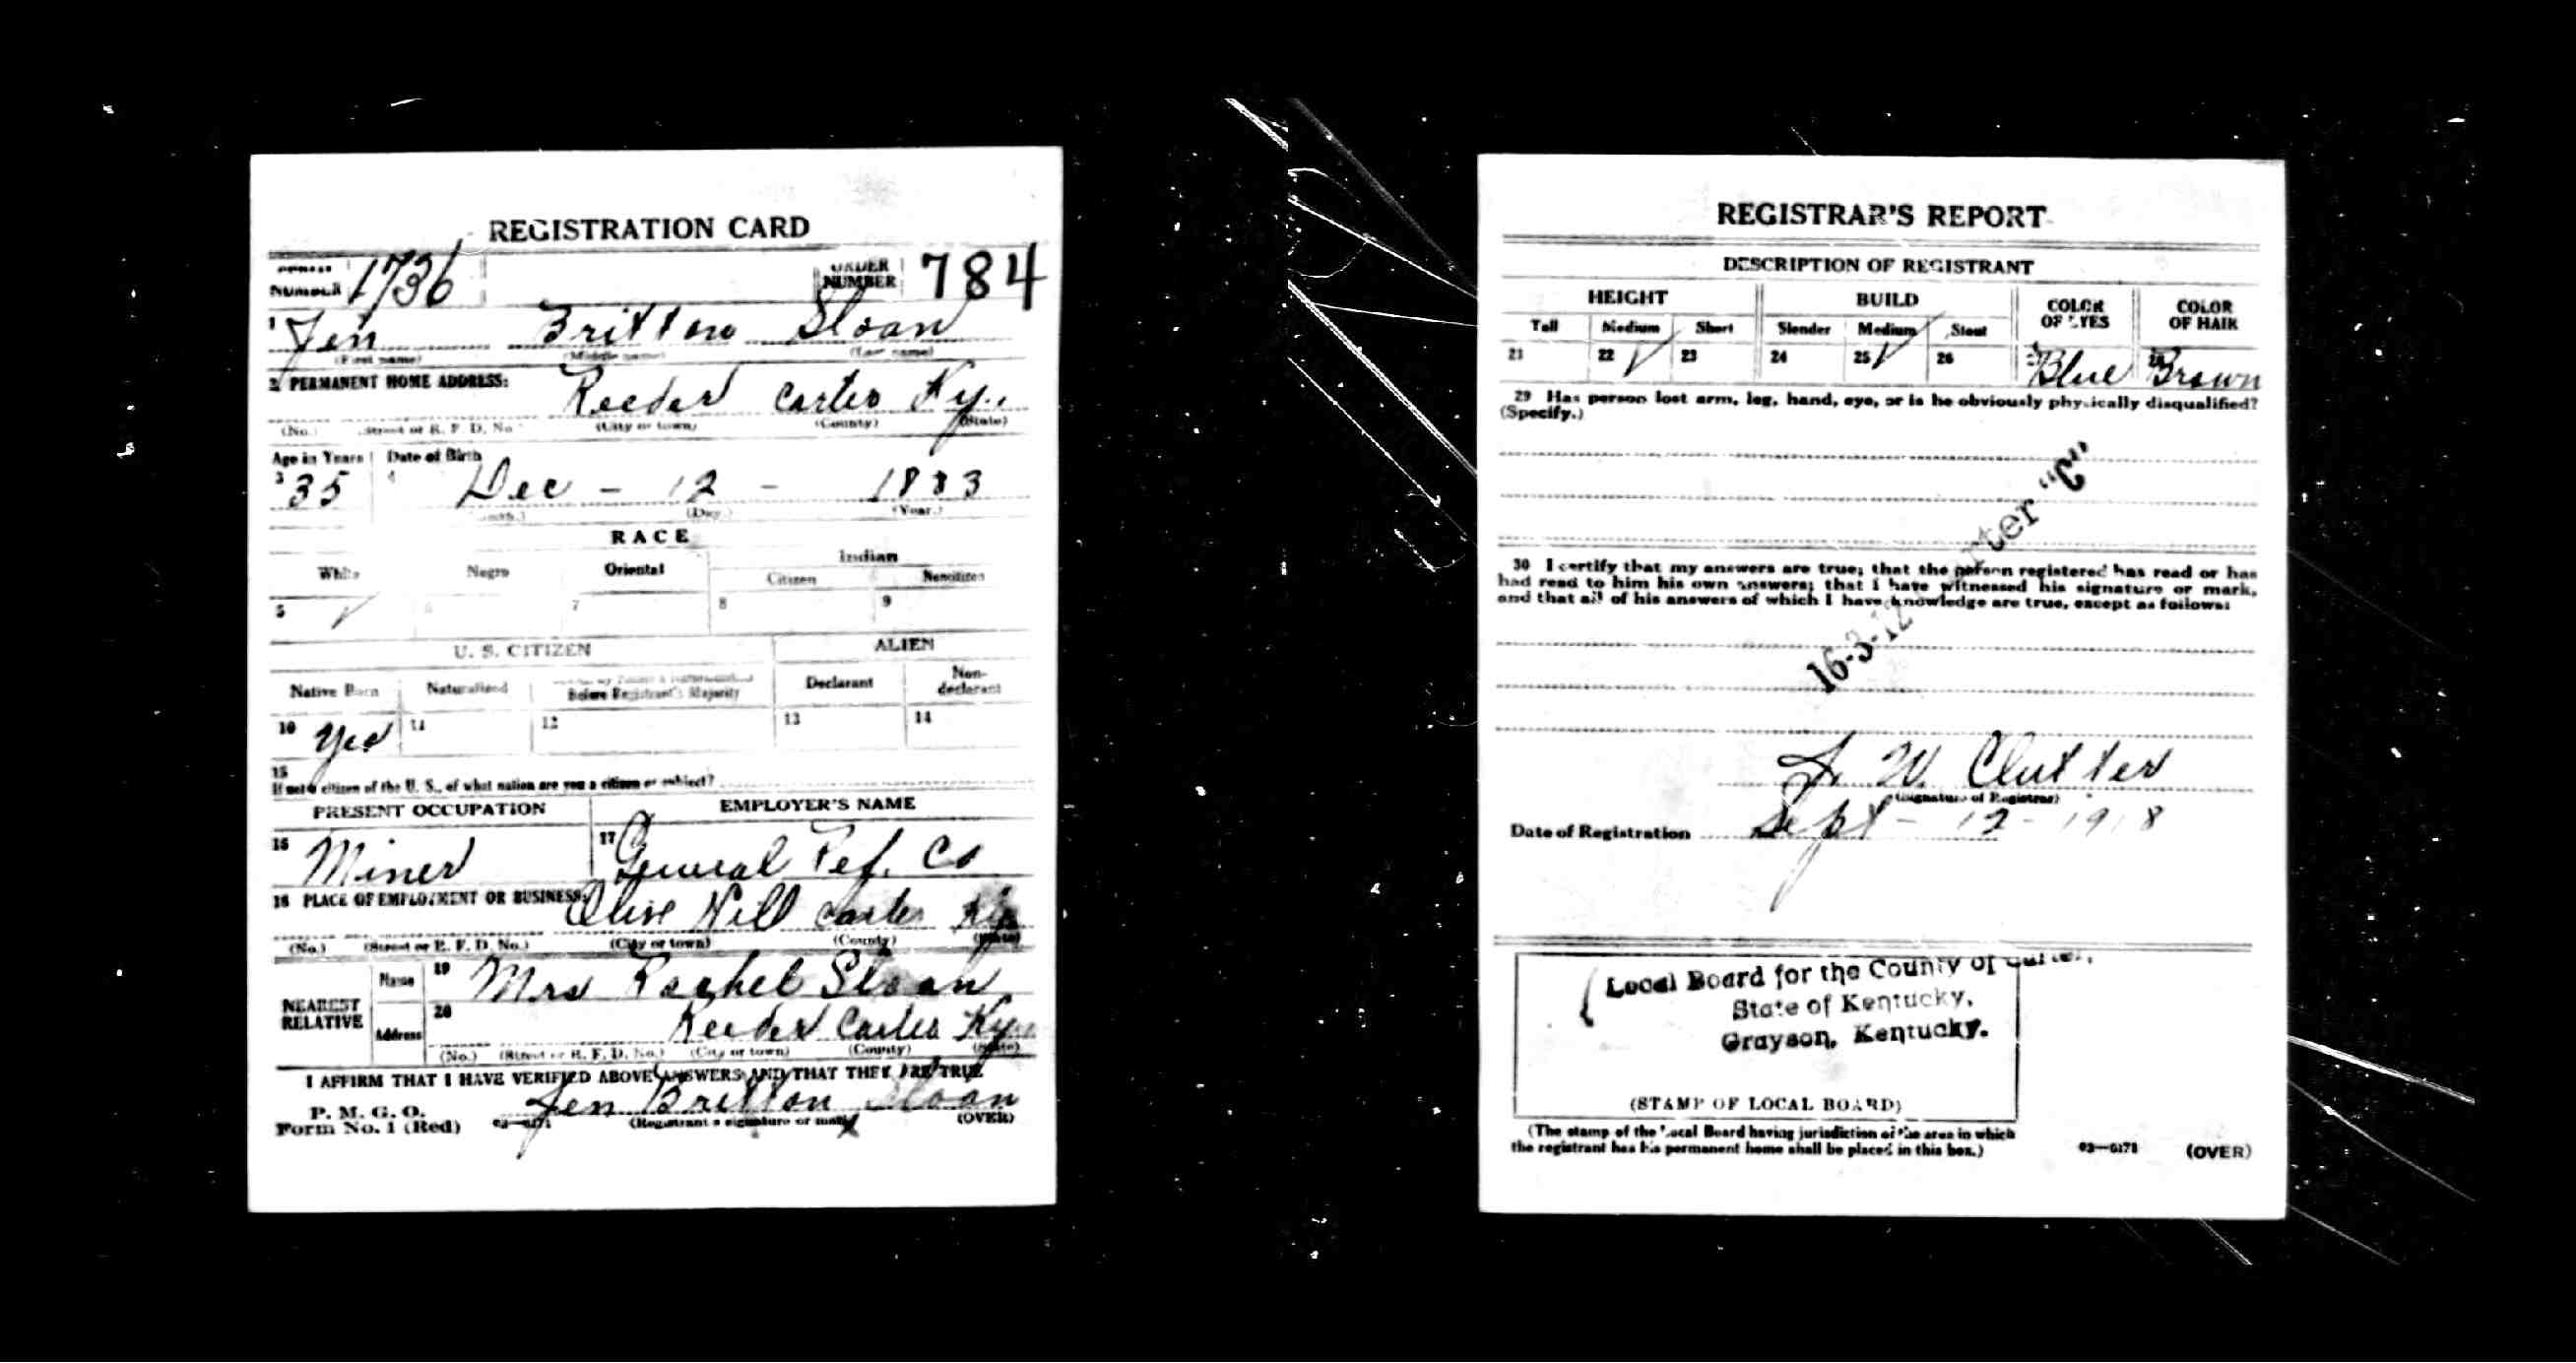 REGISTRATION CARD
NUMBER 1736 ORDER NUMBER 784
1 Jen Britton Sloan
(First name) (Middle name) (Last name)
2 PERMANENT HOME ADDRESS:
Reeder Carter Ky.
(No.) (Street or R. F. D. No.) (City or town) (County) (State)
Age in Years Date of Birth
3 35 4 Dec - 12 - 1883
(Month.) (Day.) (Year.)
RACE
White Negro Oriental Indian
Citizen Noncitizen
5 ✓ 6 7 8 9
U. S. CITIZEN ALIEN
Native Born Naturalized Before Registrant's Majority Declarant Non-declarant
10 Yes 11 12 13 14
15
If not a citizen of the U. S., of what nation are you a citizen or subject?
PRESENT OCCUPATION EMPLOYER'S NAME
16 Miner 17 General Ref. Co
18 PLACE OF EMPLOYMENT OR BUSINESS:
Olive Hill Carter Ky
(No.) (Street or R. F. D. No.) (City or town) (County) (State)
NEAREST RELATIVE
Name 19 Mrs Rachel Sloan
Address 20 Reeder Carter Ky
(No.) (Street or R. F. D. No.) (City or town) (County) (State)
I AFFIRM THAT I HAVE VERIFIED ABOVE ANSWERS AND THAT THEY ARE TRUE
P. M. G. O.
Form No. 1 (Red) 03—6171 Jen Britton Sloan
(Registrant's signature or mark) (OVER)
REGISTRAR'S REPORT
DESCRIPTION OF REGISTRANT
HEIGHT BUILD COLOR OF EYES COLOR OF HAIR
Tall Medium Short Slender Medium Stout
21 22 ✓ 23 24 25 ✓ 26 27 Blue 28 Brown
29 Has person lost arm, leg, hand, eye, or is he obviously physically disqualified?
(Specify.)
30 I certify that my answers are true; that the person registered has read or has
had read to him his own answers; that I have witnessed his signature or mark,
and that all of his answers of which I have knowledge are true, except as follows:
16-3-12 "C"
J. W. Clutter
(Signature of Registrar)
Date of Registration Sept - 12 - 1918
Local Board for the County of Carter,
State of Kentucky,
Grayson, Kentucky.
(STAMP OF LOCAL BOARD)
(The stamp of the Local Board having jurisdiction of the area in which
the registrant has his permanent home shall be placed in this box.)
03—6171 (OVER)